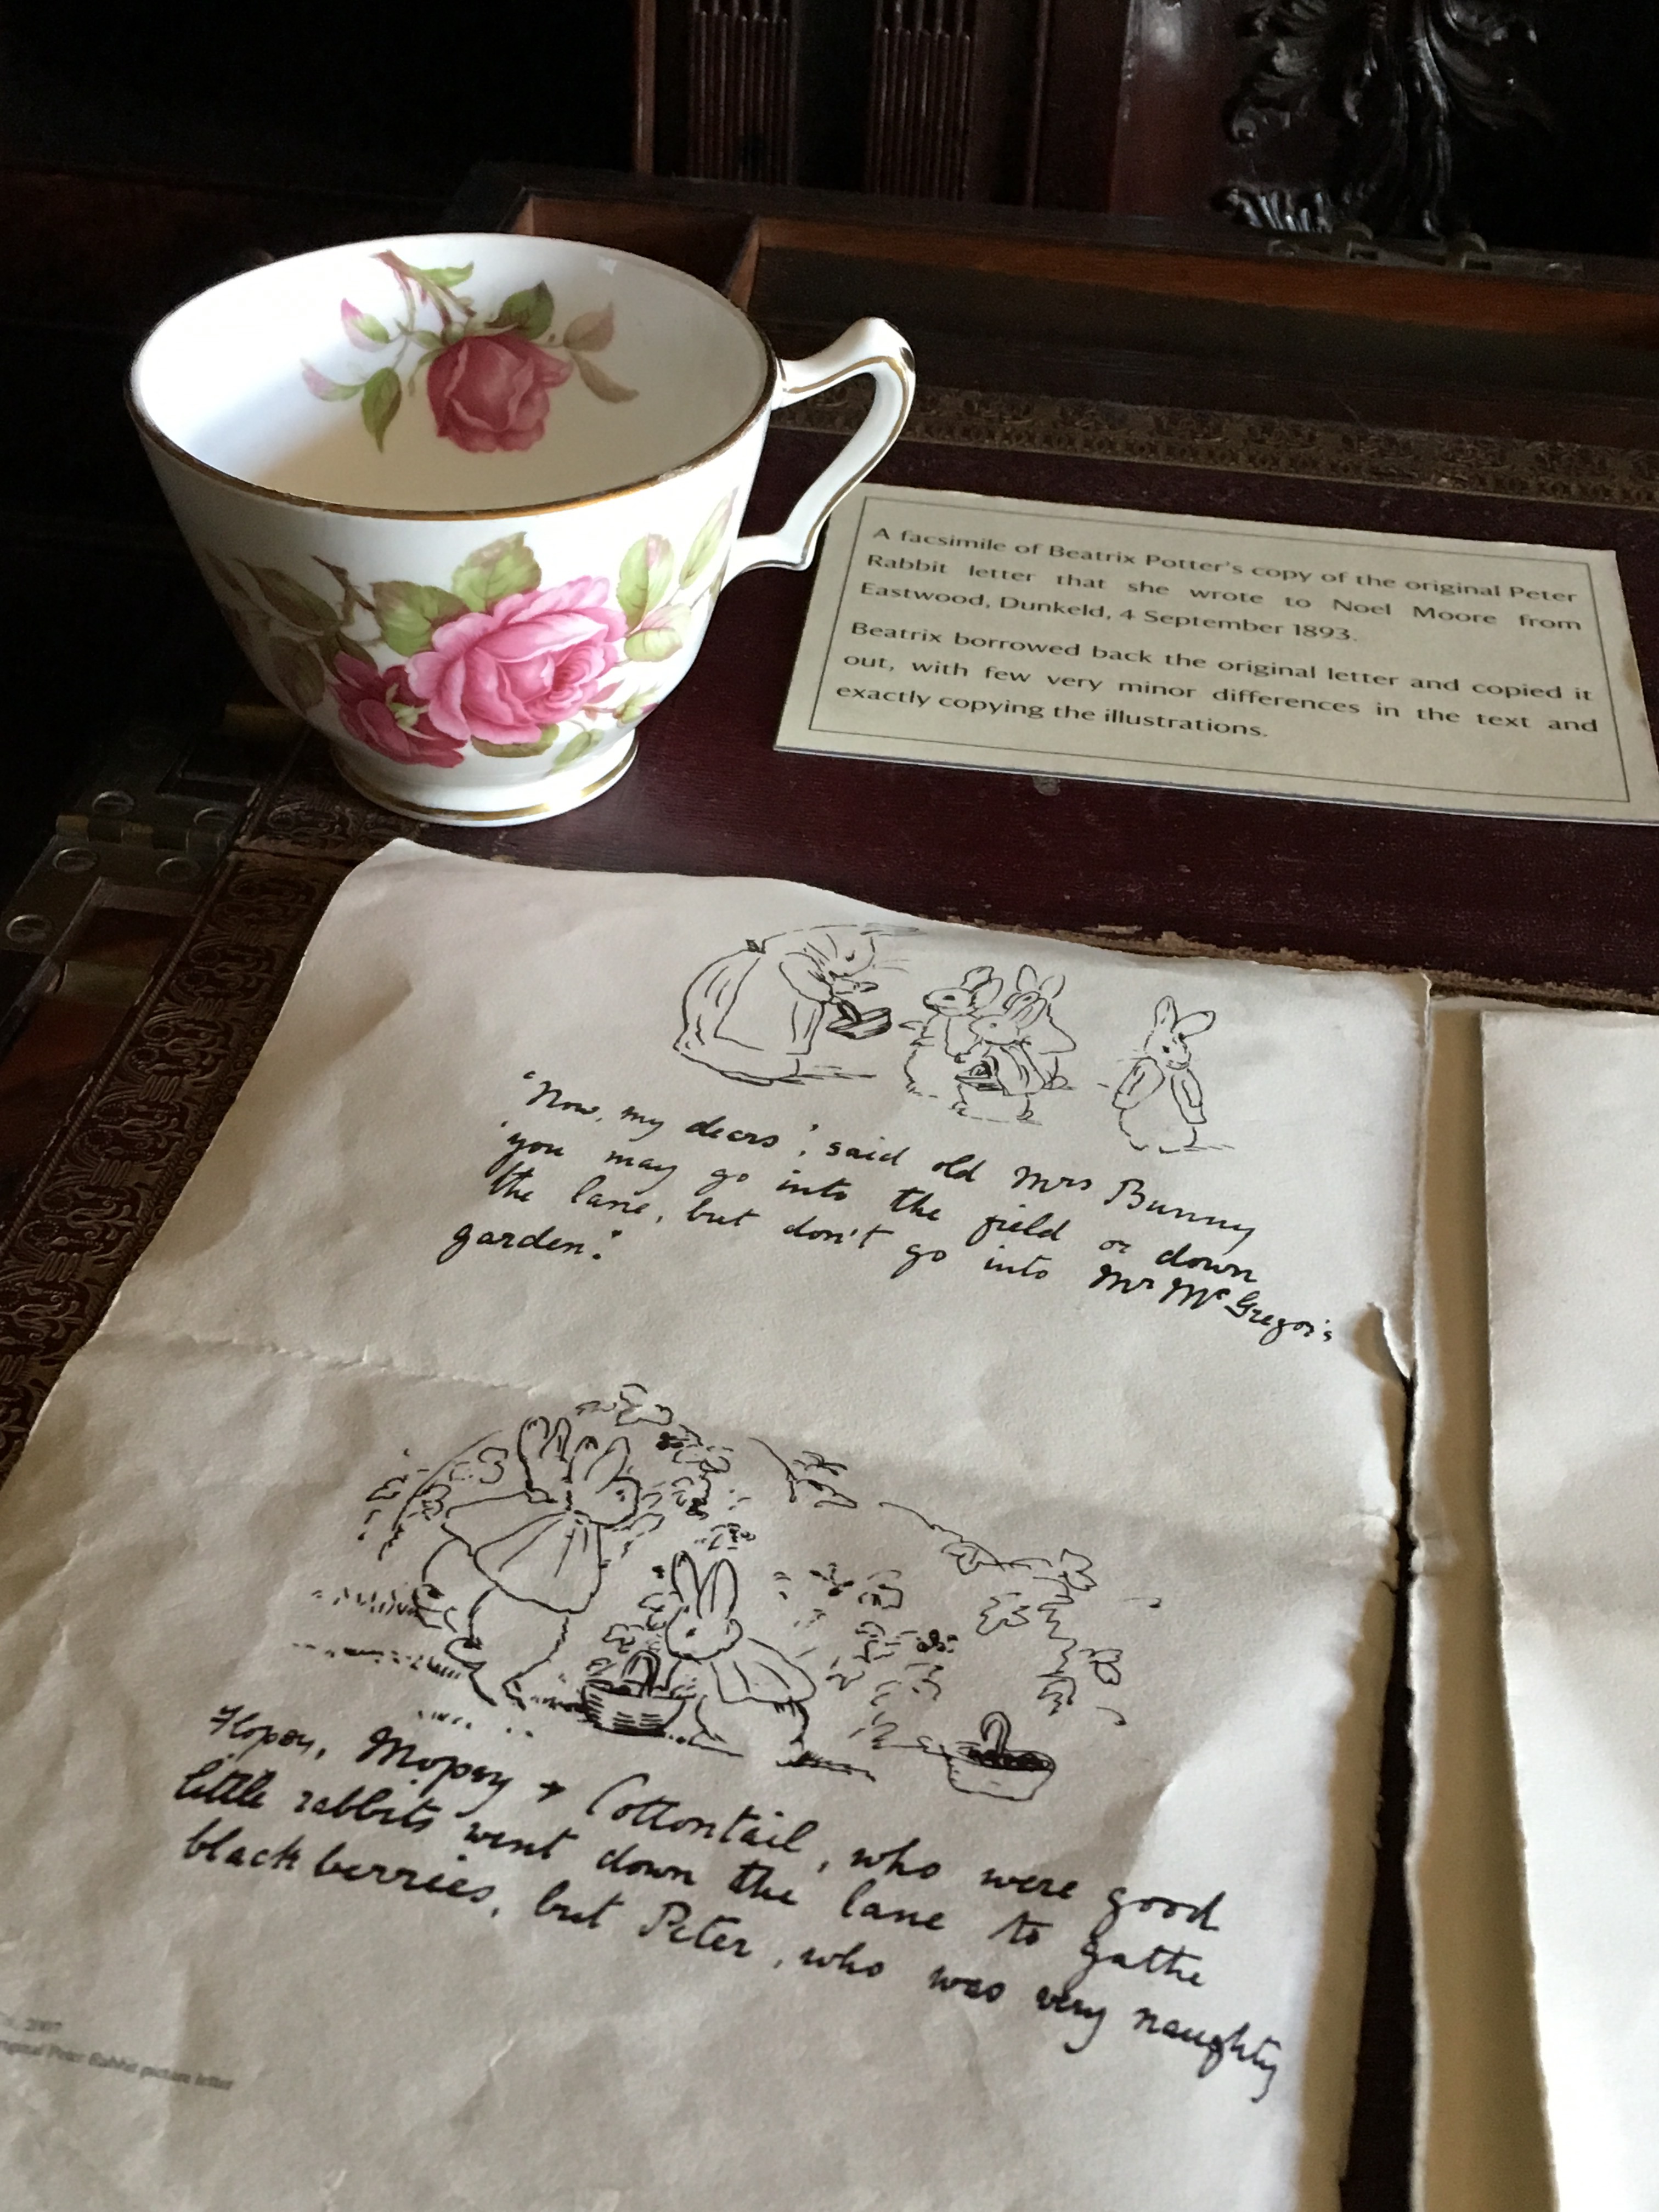 A facsimile of Beatrix Potter's copy of the original Peter
Rabbit letter that she wrote to Noel Moore from
Eastwood, Dunkeld, 4 September 1893.
Beatrix borrowed back the original letter and copied it
out, with few very minor differences in the text and
exactly copying the illustrations.
'Now, my dears', said old Mrs Bunny
'you may go into the field or down
the lane, but don't go into Mr McGregor's
garden.'
Flopsy, Mopsy + Cottontail, who were good
little rabbits went down the lane to gathe
black berries, but Peter, who was very naughty
2007
Peter Rabbit picture letter